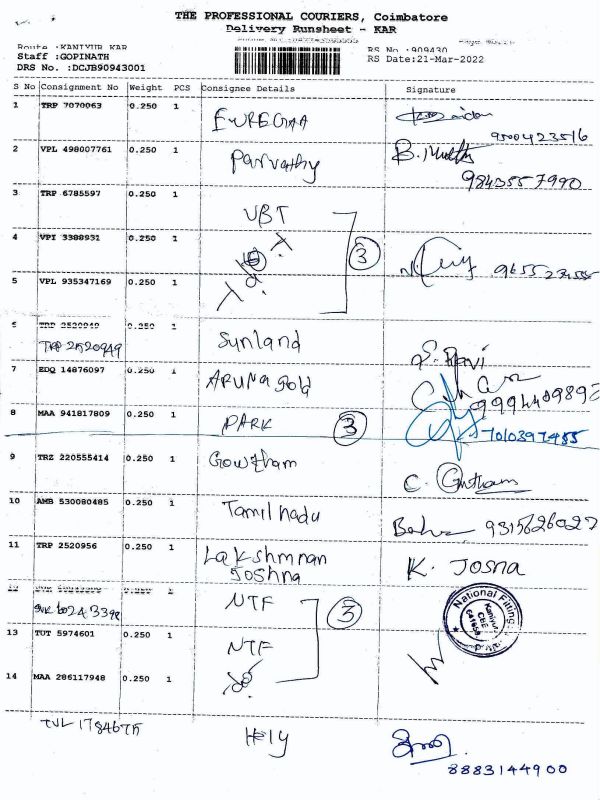 THE PROFESSIONAL COURIERS, Coimbatore
Delivery Runsheet - KAR
Route :KANIYUR KAR
RS No :909430
Staff :GOPINATH
RS Date:21-Mar-2022
DRS No. :DCJB90943001
S No Consignment No Weight PCS Consignee Details Signature
1 TRP 7070063 0.250 1
2 VPL 498007761 0.250 1 Parvathy
9843557990
3 TRP 6785597 0.250 1 VBT
4 VPI 3388931 0.250 1 3
5 VPL 935347169 0.250 1
6 TRP 2520949 0.250 1 Sunland S. Ravi
TRP 2520949
7 EDQ 14876097 0.250 1 ARUNA gold
8 MAA 941817809 0.250 1 PARK 3
7010397455
9 TRZ 220555414 0.250 1 Gowtham C. Gutham
10 AMB 530080485 0.250 1 Tamil nadu
11 TRP 2520956 0.250 1 Lakshmnan
Joshna K. Josna
12 NTF
3
National Fitting
Kaniyur
CBE
641659
13 TUT 5974601 0.250 1 NTF
14 MAA 286117948 0.250 1
8883144900